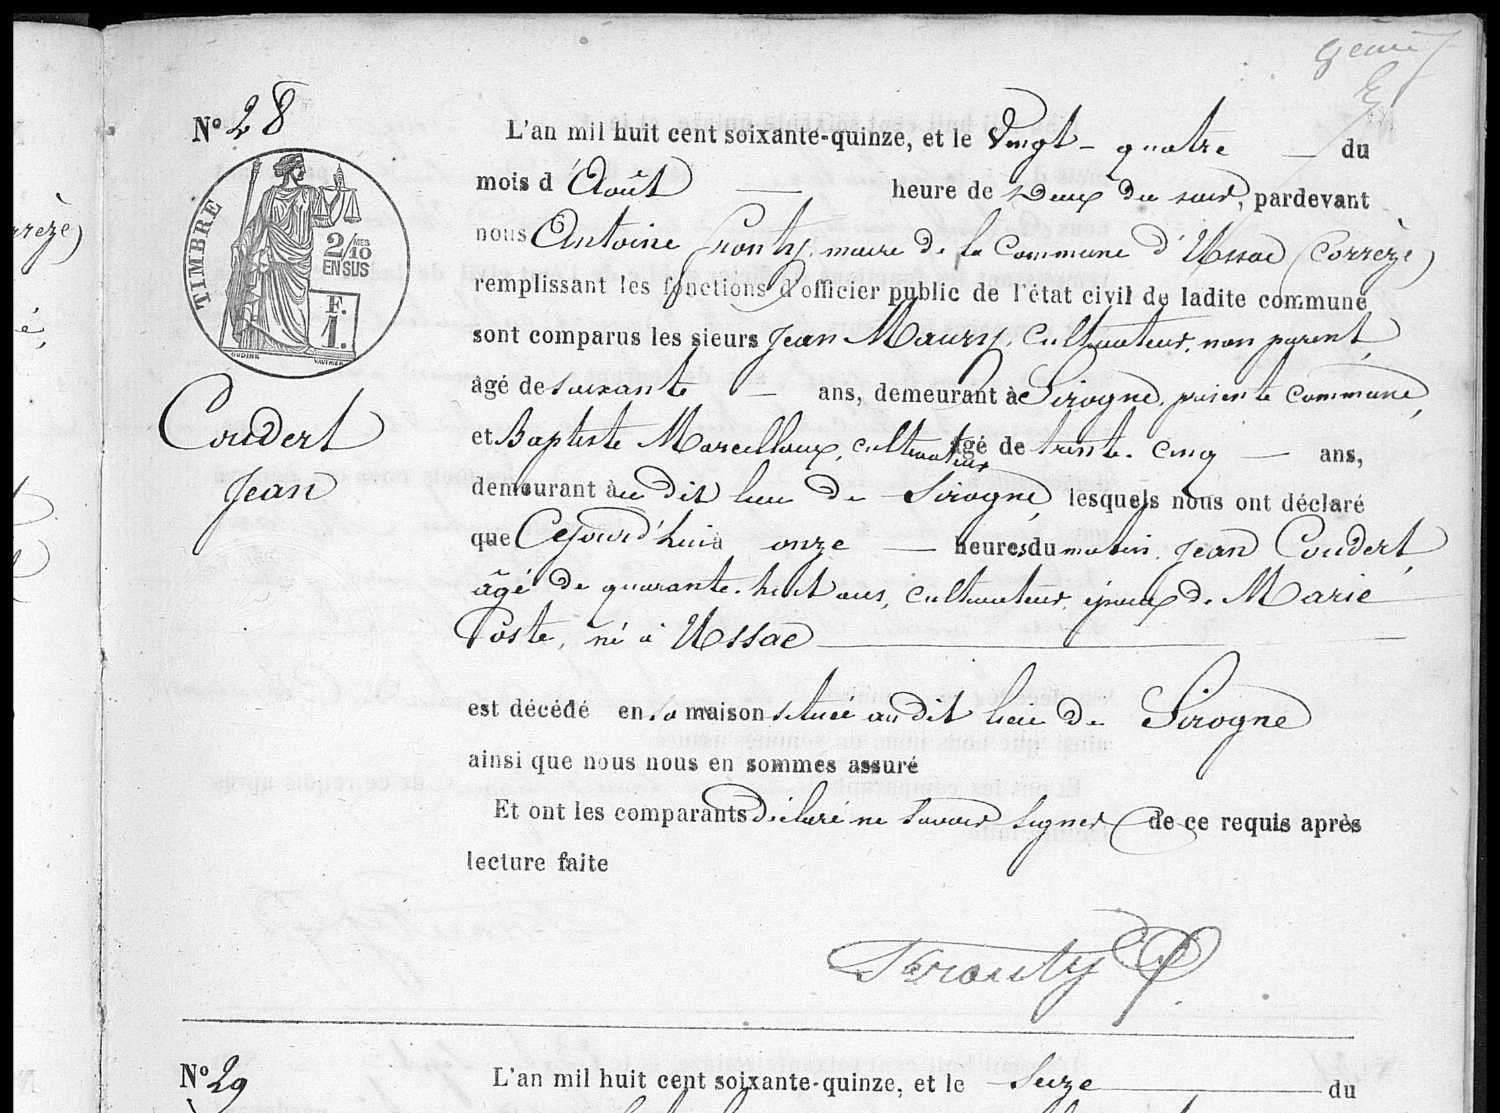 N° 28
L'an mil huit cent soixante-quinze, et le Vingt-quatre du
mois d'Août heure de Deux du soir, pardevant
nous Antoine Fronty, maire de la Commune d'Ussac (Corrèze)
remplissant les fonctions d'officier public de l'état civil de ladite commune
sont comparus les sieurs Jean Maury, Cultivateur, non parent,
âgé de soixante ans, demeurant à Sirogne, présente commune,
et Baptiste Marcilloux, cultivateur âgé de trente-cinq ans,
demeurant au dit lieu de Sirogne, lesquels nous ont déclaré
que Cejourd'hui à onze heures du matin, Jean Coudert,
âgé de quarante-huit ans, cultivateur, époux de Marie
Poste, né à Ussac
est décédé en sa maison située au dit lieu de Sirogne
ainsi que nous nous en sommes assuré
Et ont les comparants déclaré ne savoir signer de ce requis après
lecture faite
Fronty
TIMBRE
2/10 MES
EN SUS
F.
1.
OUDINÉ
Coudert
Jean
rrèze)
é,
N° 29
L'an mil huit cent soixante-quinze, et le Seize du